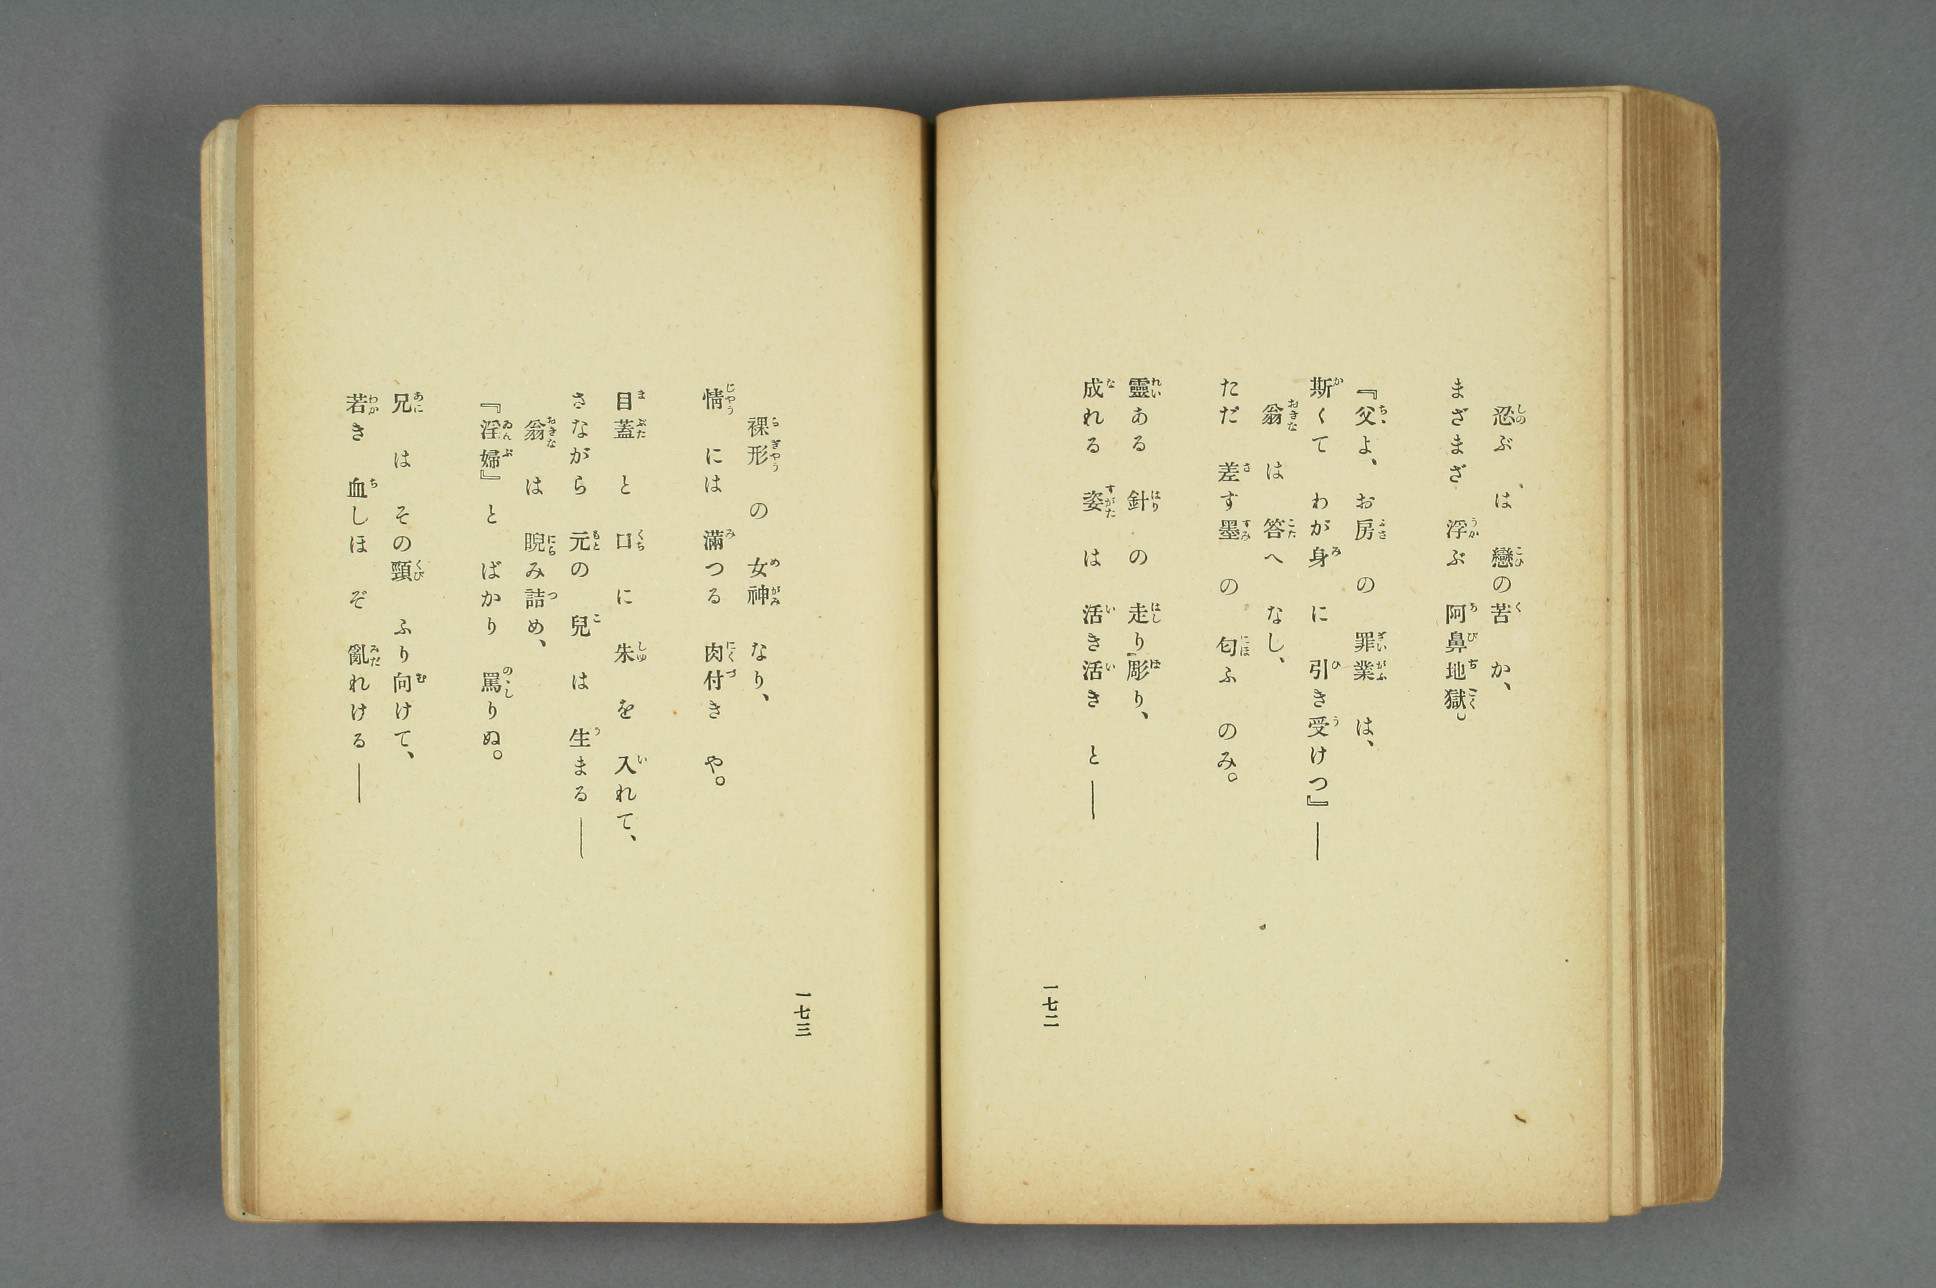 忍ぶ、は 戀の苦 か、
まざまざ 浮ぶ 阿鼻地獄。
『父よ、お房 の 罪業 は、
斯くて わが身 に 引き受けつ』——
翁 は 答へ なし、
ただ 差す墨 の 匂ふ のみ。
靈ある 針 の 走り彫り、
成れる 姿 は 活き活き と——
一七二
裸形 の 女神 なり、
情 には 滿つる 肉付き や。
目蓋 と 口 に 朱 を 入れて、
さながら 元の 兒 は 生まる——
翁 は 睨み詰め、
『淫婦』と ばかり 罵りぬ。
兄 は その頸 ふり向けて、
若き 血しほ ぞ 亂れける——
一七三